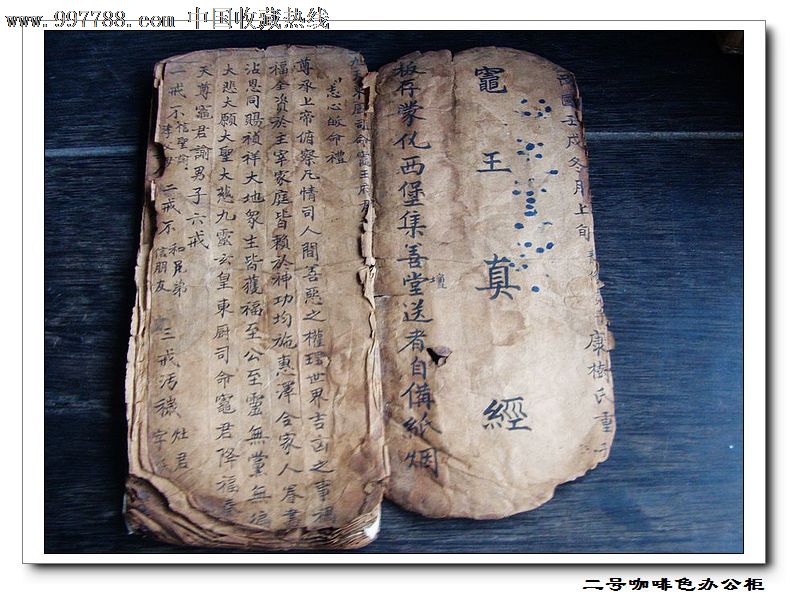 www.997788.com 中国收藏热线
民國壬戌冬月上旬
康樹氏重
竈王真經
板存蒙化西堡集善堂送者自備紙烟
壇
九天東厨司命竈王府君
志心皈命禮
尊承上帝俯察凡情司人間善惡之權理世界吉凶之事禍
福全資於主宰家庭皆賴於神功均施惠澤合家人眷書
沾恩同賜禎祥大地衆生皆獲福至公至靈無黨無偏
大悲大願大聖大慈九靈玄皇東厨司命竈君降福
天尊竈君諭男子六戒
一戒不 二戒不和兄弟信朋友 三戒汚穢灶君字
二号咖啡色办公柜